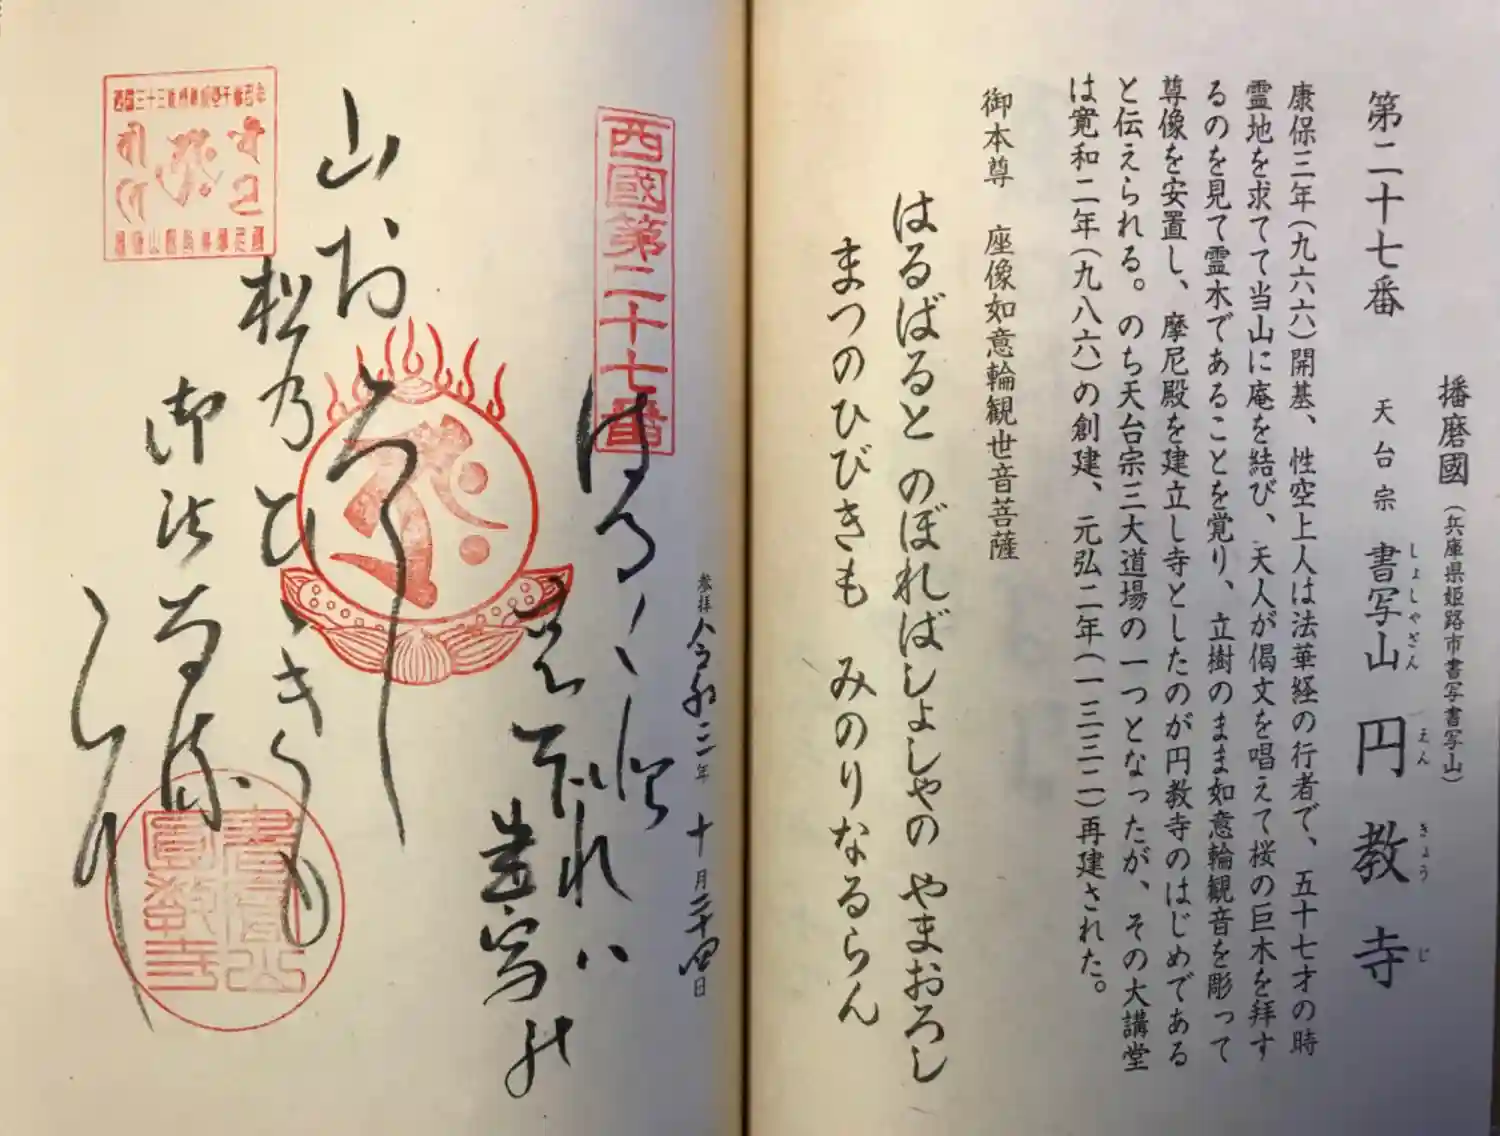 播磨國(兵庫県姫路市書写書写山)
第二十七番 天台宗 書写山 円教寺
しょしゃざん えんきょうじ
康保三年(九六六)開基、性空上人は法華経の行者で、五十七才の時
霊地を求てて当山に庵を結び、天人が偈文を唱えて桜の巨木を拝す
るのを見て霊木であることを覚り、立樹のまま如意輪観音を彫って
尊像を安置し、摩尼殿を建立し寺としたのが円教寺のはじめである
と伝えられる。のち天台宗三大道場の一つとなったが、その大講堂
は寛和二年(九八六)の創建、元弘二年(一三三二)再建された。
御本尊 座像如意輪観世音菩薩
はるばると のぼればしょしゃの やまおろし
まつのひびきも みのりなるらん
参拝 令和三年 十月二十四日
西國第二十七番
はる〱登
書写の
山おろし
松乃ひゞきも
御法
書寫山
圓教寺